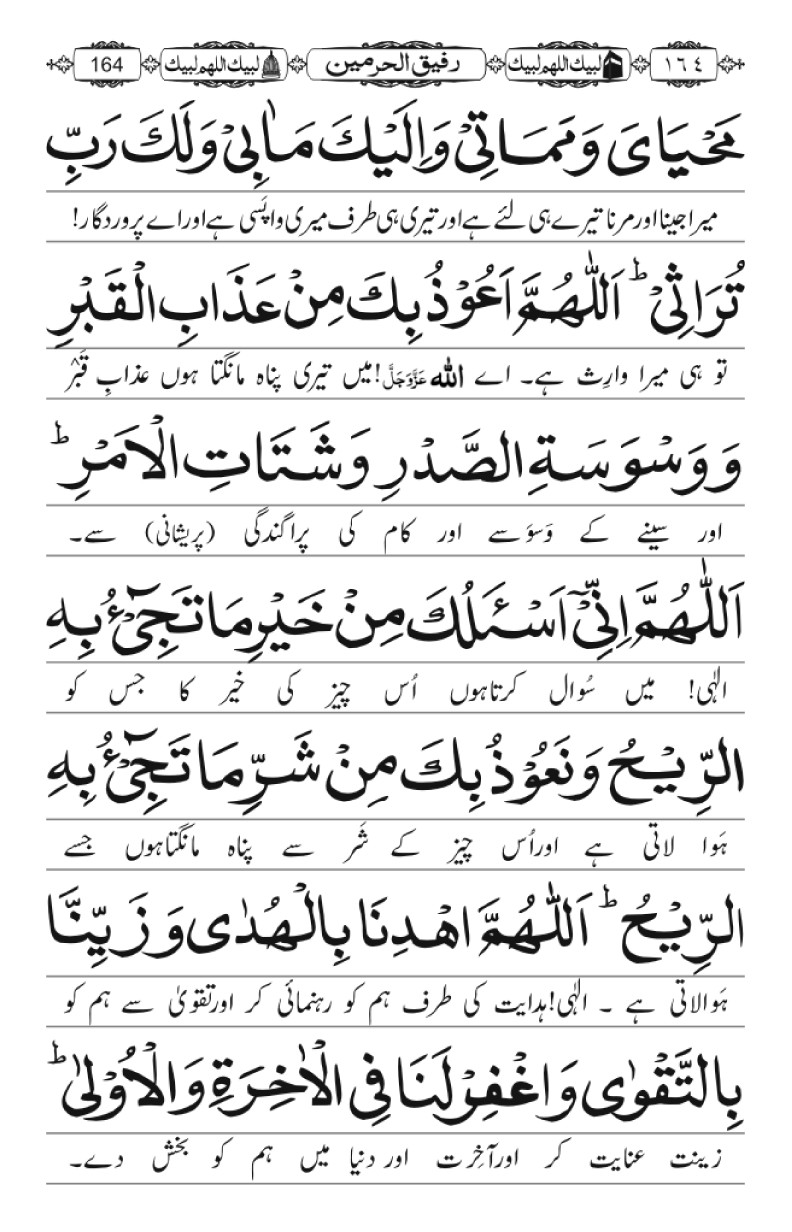 ١٦٤ لبیک اللھم لبیک رفیق الحرمین لبیک اللھم لبیک 164
مَحْیَایَ وَمَمَاتِیْ وَاِلَیْكَ مَاٰبِیْ وَلَكَ رَبِّ
میرا جینا اور مرنا تیرے ہی لئے ہے اور تیری ہی طرف میری واپَسی ہے اور اے پروردگار!
تُرَاثِیْ ؕ اَللّٰهُمَّ اَعُوْذُ بِكَ مِنْ عَذَابِ الْقَبْرِ
تو ہی میرا وارِث ہے۔ اے اللہ عَزَّوَجَلَّ! میں تیری پناہ مانگتا ہوں عذابِ قَبْر
وَوَسْوَسَةِ الصَّدْرِ وَشَتَاتِ الْاَمْرِ ؕ
اور سینے کے وَسوَسے اور کام کی پراگندگی (پریشانی) سے۔
اَللّٰهُمَّ اِنِّیْۤ اَسْئَلُكَ مِنْ خَیْرِ مَا تَجِیْٓءُ بِهِ
الٰہی! میں سُوال کرتاہوں اُس چیز کی خیر کا جس کو
الرِّیْحُ وَنَعُوْذُ بِكَ مِنْ شَرِّ مَا تَجِیْٓءُ بِهِ
ہَوا لاتی ہے اوراُس چیز کے شَر سے پناہ مانگتاہوں جسے
الرِّیْحُ ؕ اَللّٰهُمَّ اهْدِنَا بِالْهُدٰی وَزَیِّنَّا
ہَوالاتی ہے ۔ الٰہی!ہدایت کی طرف ہم کو رہنمائی کر اورتقویٰ سے ہم کو
بِالتَّقْوٰی وَاغْفِرْلَنَا فِی الْاٰخِرَةِ وَالْاُوْلٰی ؕ
زینت عنایت کر اورآخِرت اور دنیا میں ہم کو بخش دے۔